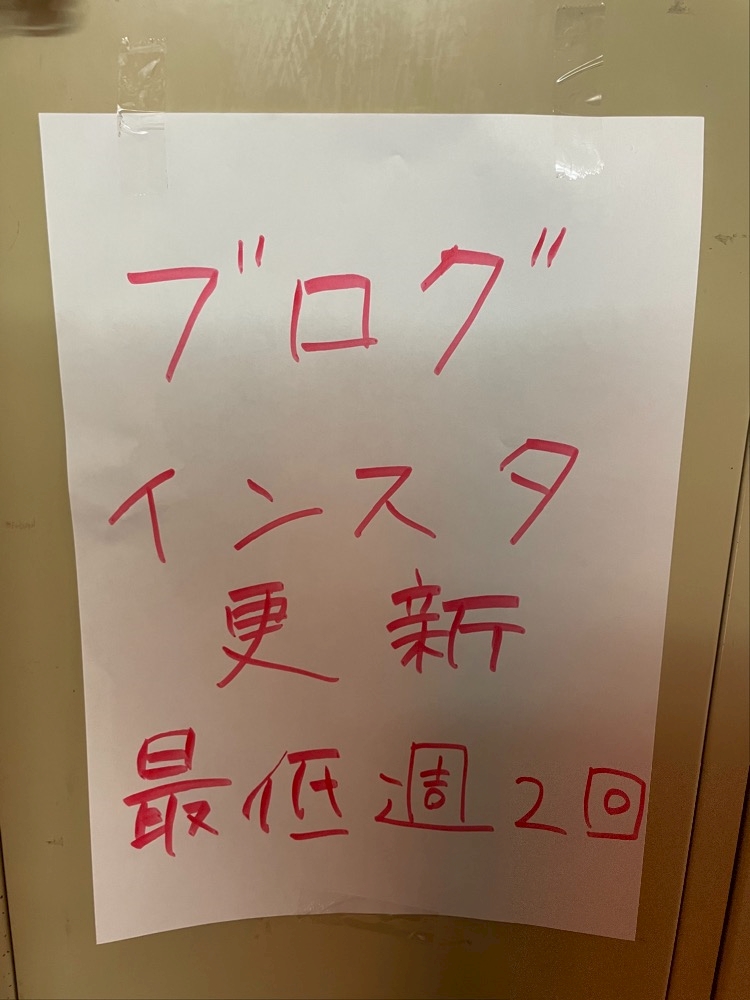 ブログ
インスタ
更新
最低週2回